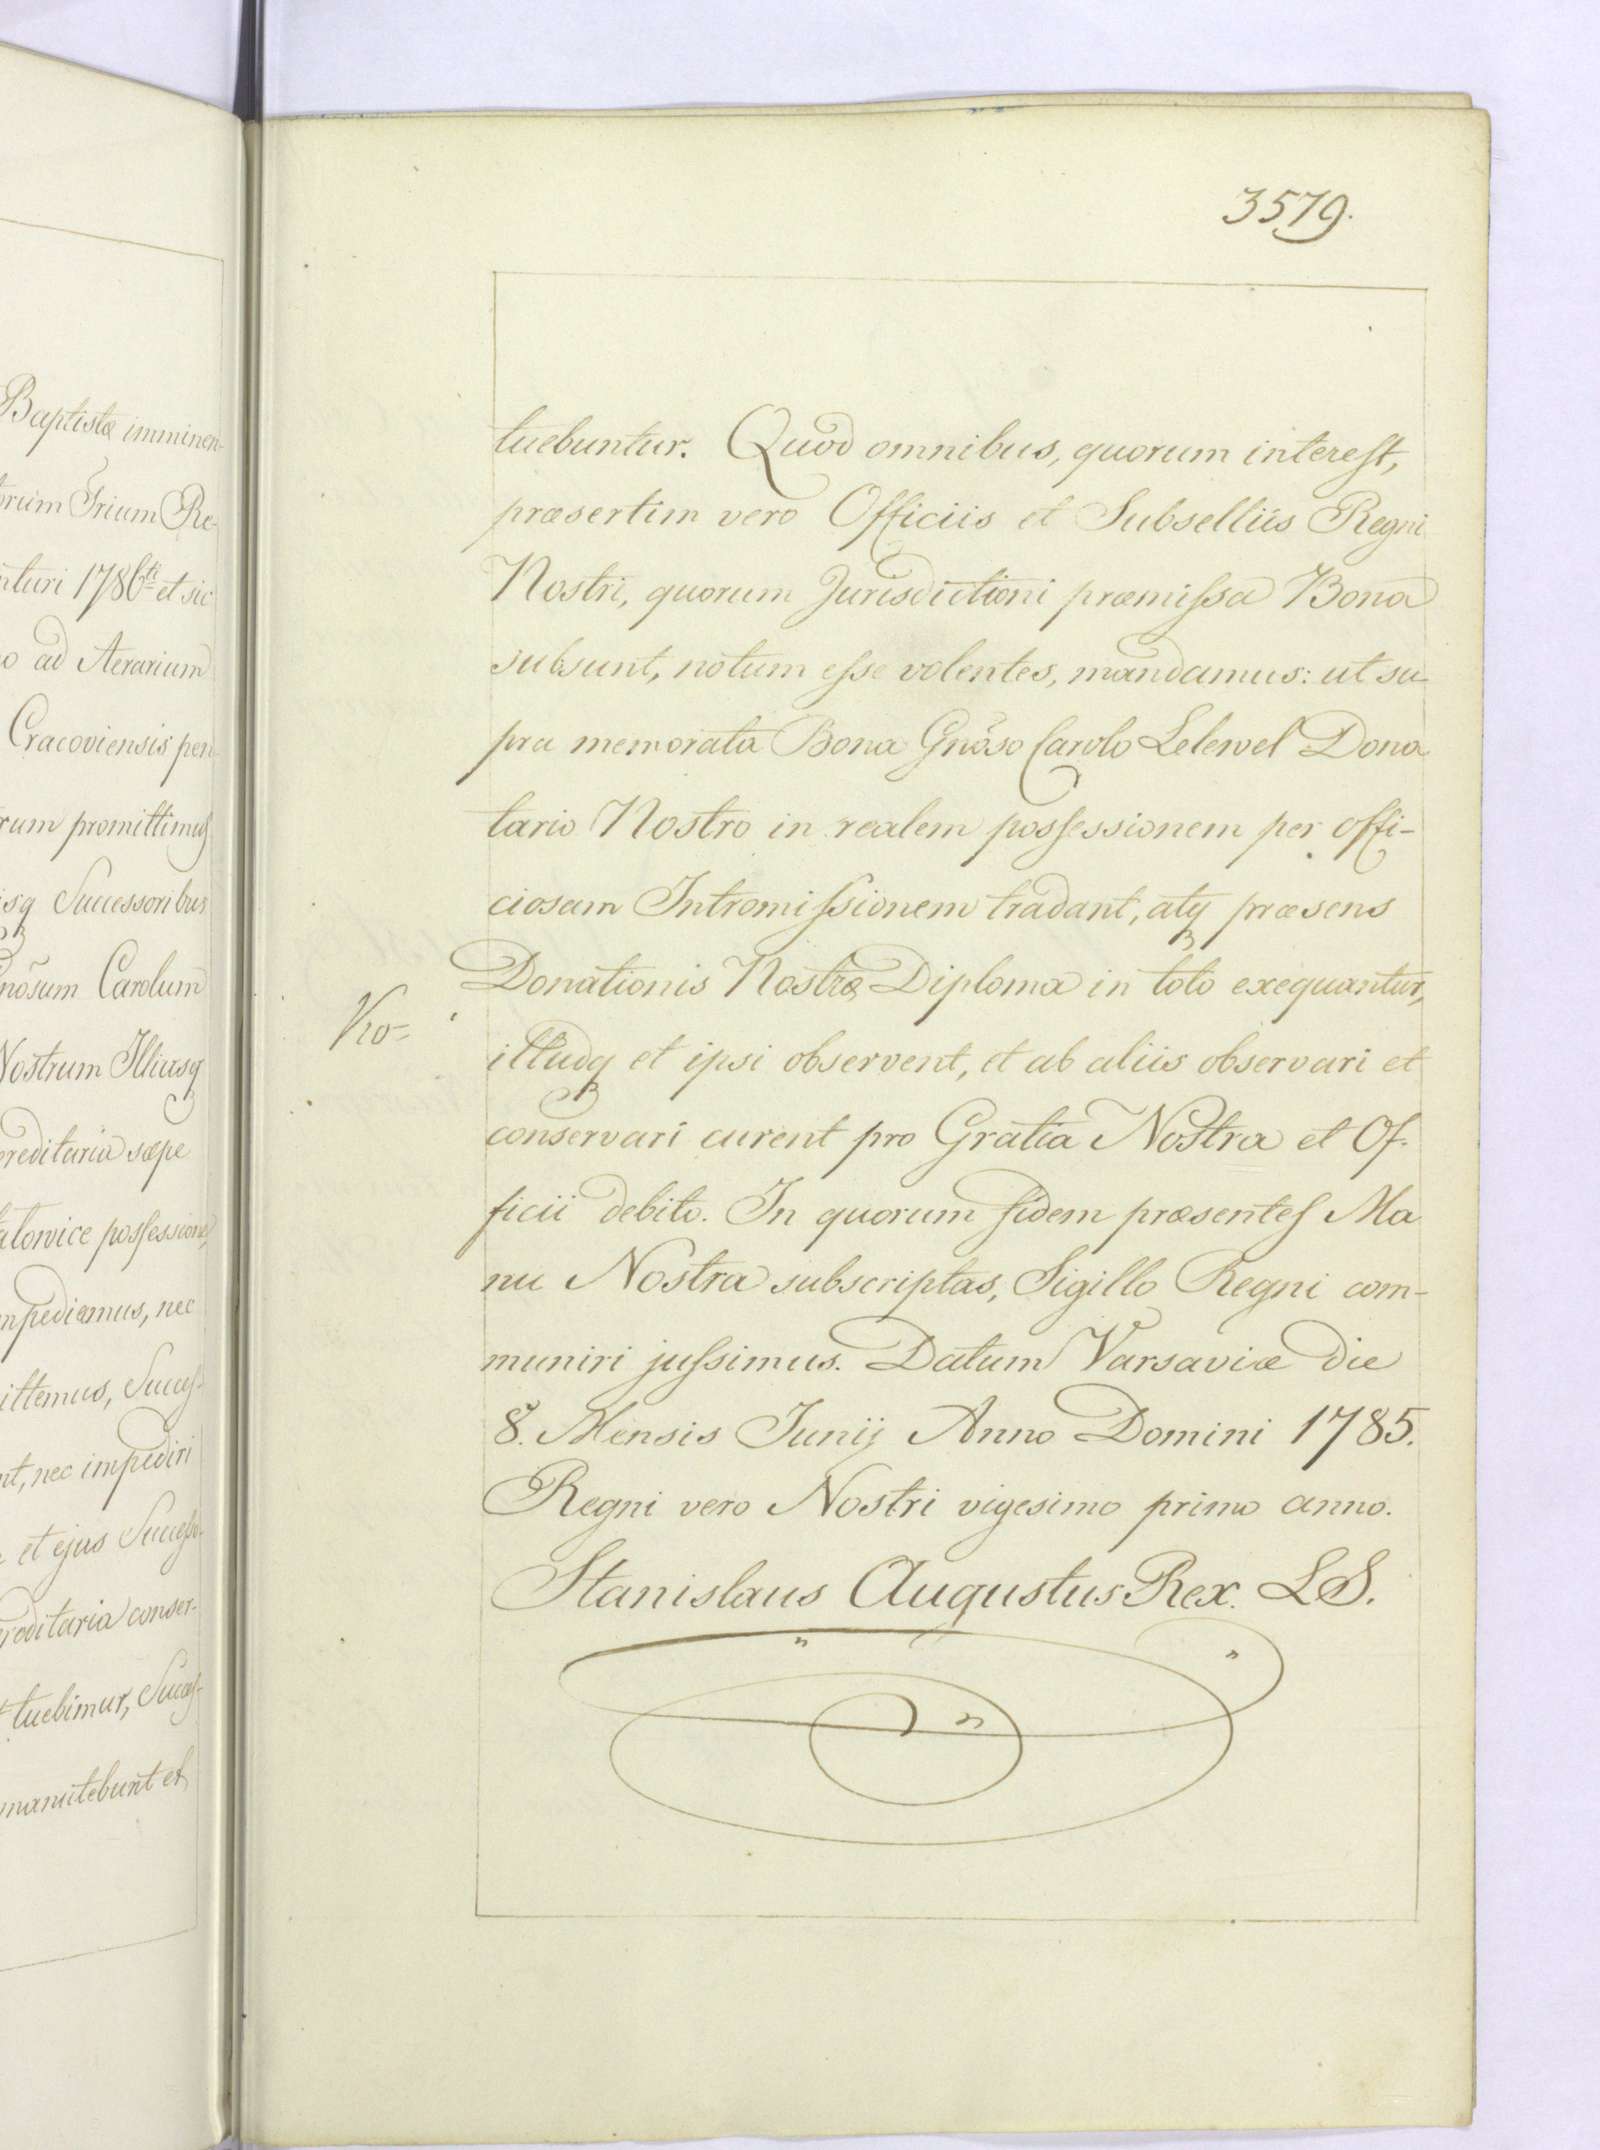 Baptistæ imminen-
orum Trium Re-
nturi 1786ti et sic
o ad Aerarium
Cracoviensis pen
rum promittimus
isq Successoribus
nõsum Carolum
Nostrum Illiusq
ereditaria sæpe
atowice possessione,
mpediamus, nec
ittemus, Succes-
nt, nec impediri
et ejus Successo-
reditaria conser-
tuebimur, Succes-
manutebunt et
3579.
tuebuntur. Quod omnibus, quorum interest,
præsertim vero Officiis et Subselliis Regni
Nostri, quorum Jurisdictioni præmissa Bona
subsunt, notum esse volentes, mandamus: ut su-
pra memorata Bona Gnõso Carolo Lelewel Dona
tario Nostro in realem possessionem per offi-
ciosam Intromissionem tradant, atq præsens
Donationis Nostræ Diploma in toto exequantur,
illudq et ipsi observent, et ab aliis observari et
conservari curent pro Gratia Nostra et Of-
ficii debito. In quorum fidem præsentes Ma
nu Nostra subscriptas, Sigillo Regni com-
muniri jussimus. Datum Varsaviæ die
8. Mensis Junij Anno Domini 1785.
Regni vero Nostri vigesimo primo anno.
Stanislaus Augustus Rex. LS.